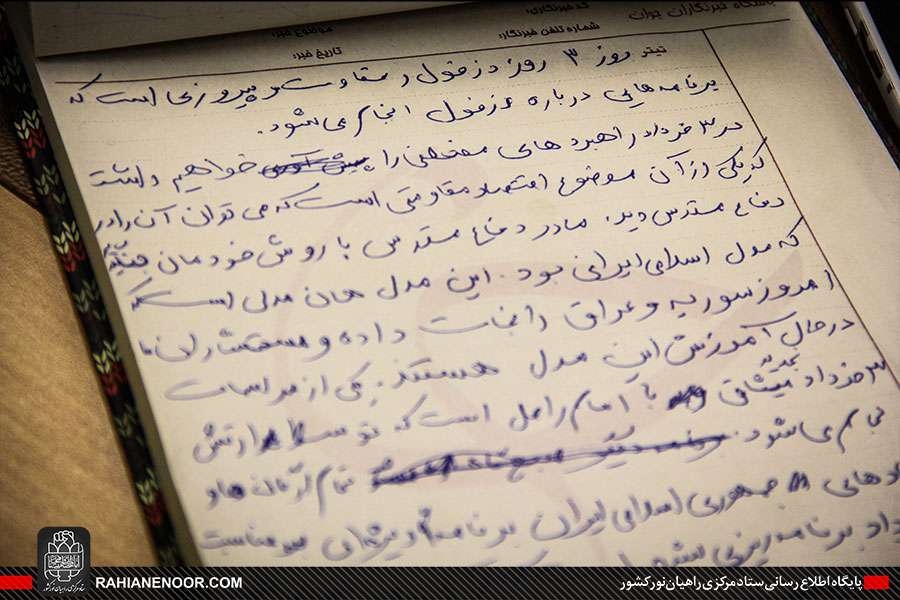 باشگاه خبرنگاران جوان
کد خبرنگاری:
شماره تلفن خبرنگار:
موضوع خبر:
تاریخ خبر:
تیتر روز ۳ روز دزفول، مقاومت و پیروزی است که
برنامه‌هایی درباره دزفول انجام می‌شود.
در ۳ خرداد راهبردهای مختلفی را خواهیم داشت
که یکی از آن موضوع اقتصاد مقاومتی است که می‌توان آن را در
دفاع مقدس دید. ما در دفاع مقدس با روش خودمان جنگیدیم
که مدل اسلامی ایرانی بود. این مدل همان مدلی است که
امروز سوریه و عراق را نجات داده و مستشاران ما
در حال آموزش این مدل هستند. یکی از مراسمات
۳ خرداد تجدید میثاق با امام راحل است که توسط ارتش
انجام می‌شود. تمام ارگان‌ها و
نهادهای جمهوری اسلامی ایران برنامه ویژه‌ای به مناسبت
RAHIANENOOR.COM
پایگاه اطلاع رسانی ستاد مرکزی راهیان نور کشور